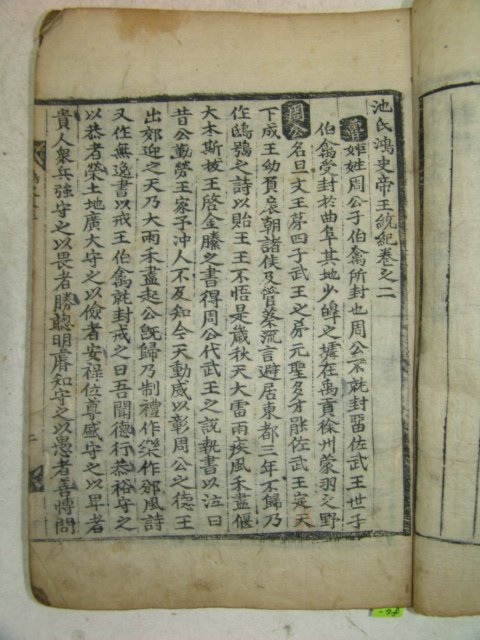 池氏鴻史帝王統紀卷之二
魯 姬姓周公子伯禽所封也周公不就封留佐武王世子
伯禽受封於曲阜其地少皥之墟在禹貢徐州蒙羽之野
周公 名旦文王第四子武王之弟元聖多才能佐武王定天
下成王幼負扆朝諸侯及管蔡流言避居東都三年不歸乃
作鴟鴞之詩以貽王王不悟是歲秋天大雷雨疾風禾盡偃
大木斯拔王啓金縢之書得周公代武王之說執書以泣曰
昔公勤勞王家予冲人不及知今天動威以彰周公之德王
出郊迎之天乃大雨禾盡起公旣歸乃制禮作樂作邠風詩
又作無逸書以戒王伯禽就封戒之曰吾聞德行恭裕守之
以恭者榮土地廣大守之以儉者安祿位尊盛守之以卑者
貴人衆兵強守之以畏者勝聰明睿知守之以愚者善博聞